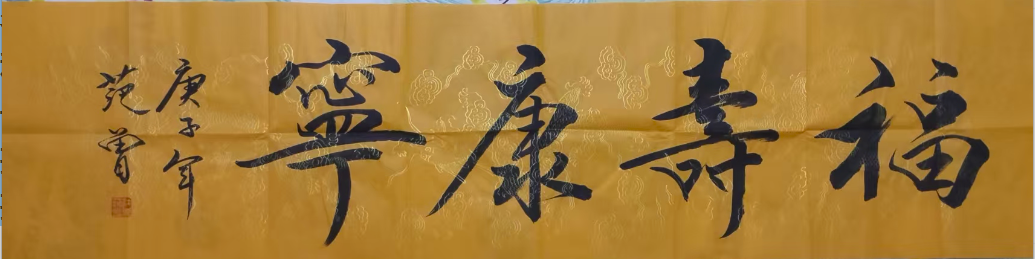 福壽康寧
庚子年
范曾